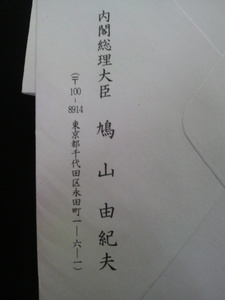 内閣総理大臣　鳩山由紀夫
(〒100-8914 東京都千代田区永田町一―六―一)